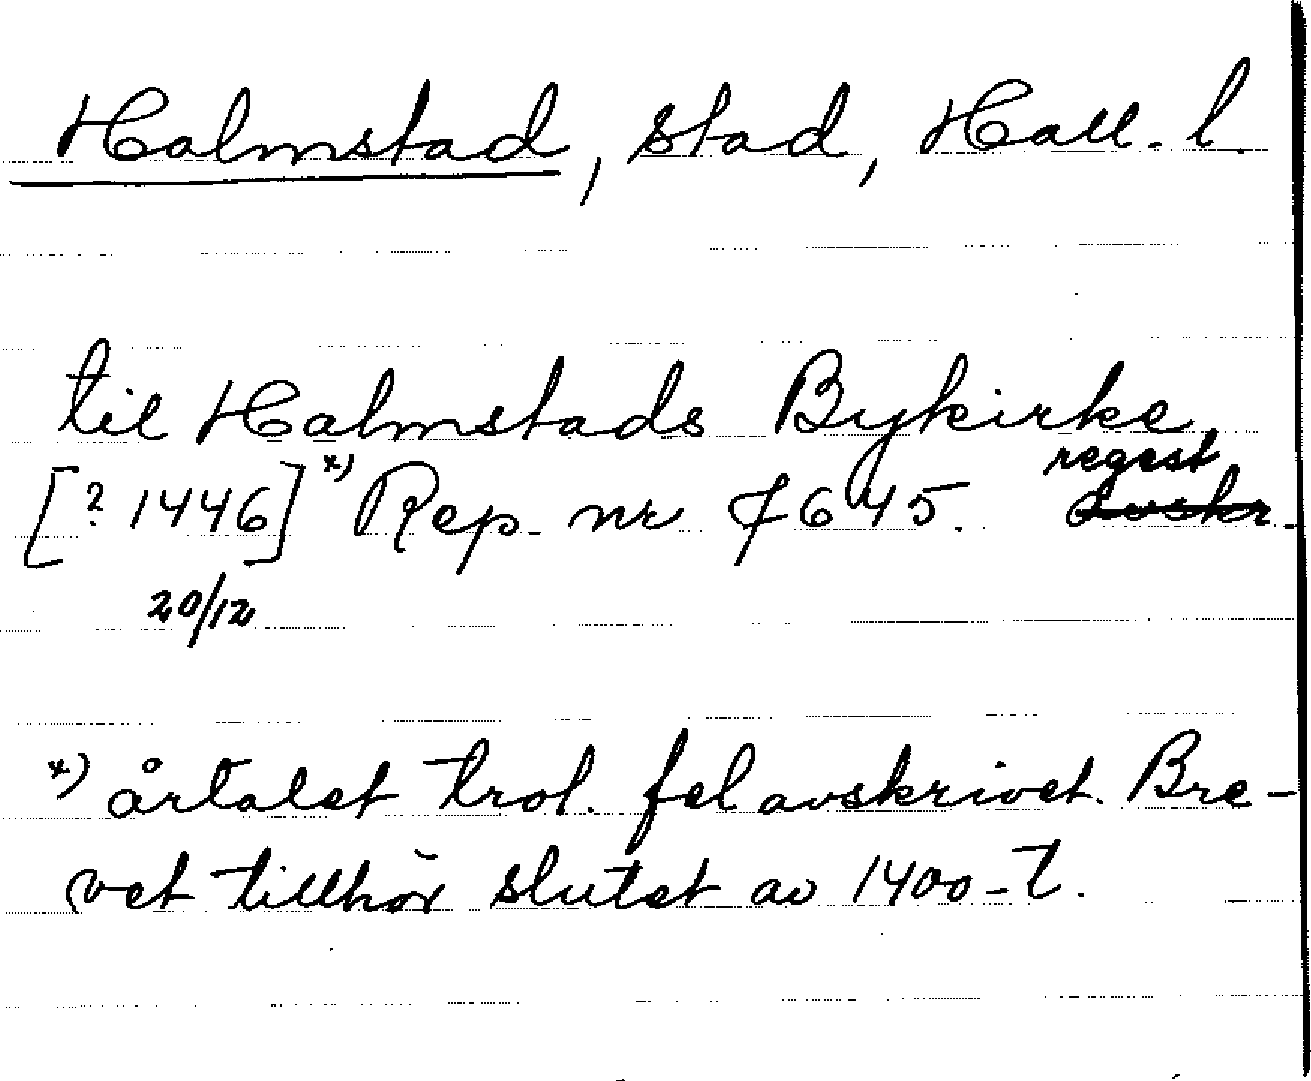 Halmstad, stad, Hall. l.
til Halmstads Bykirke
[? 1446]*) Rep. nr 7645. regest
20/12
*) årtalet trol. fel avskrivet. Bre-
vet tillhör slutet av 1400-t.